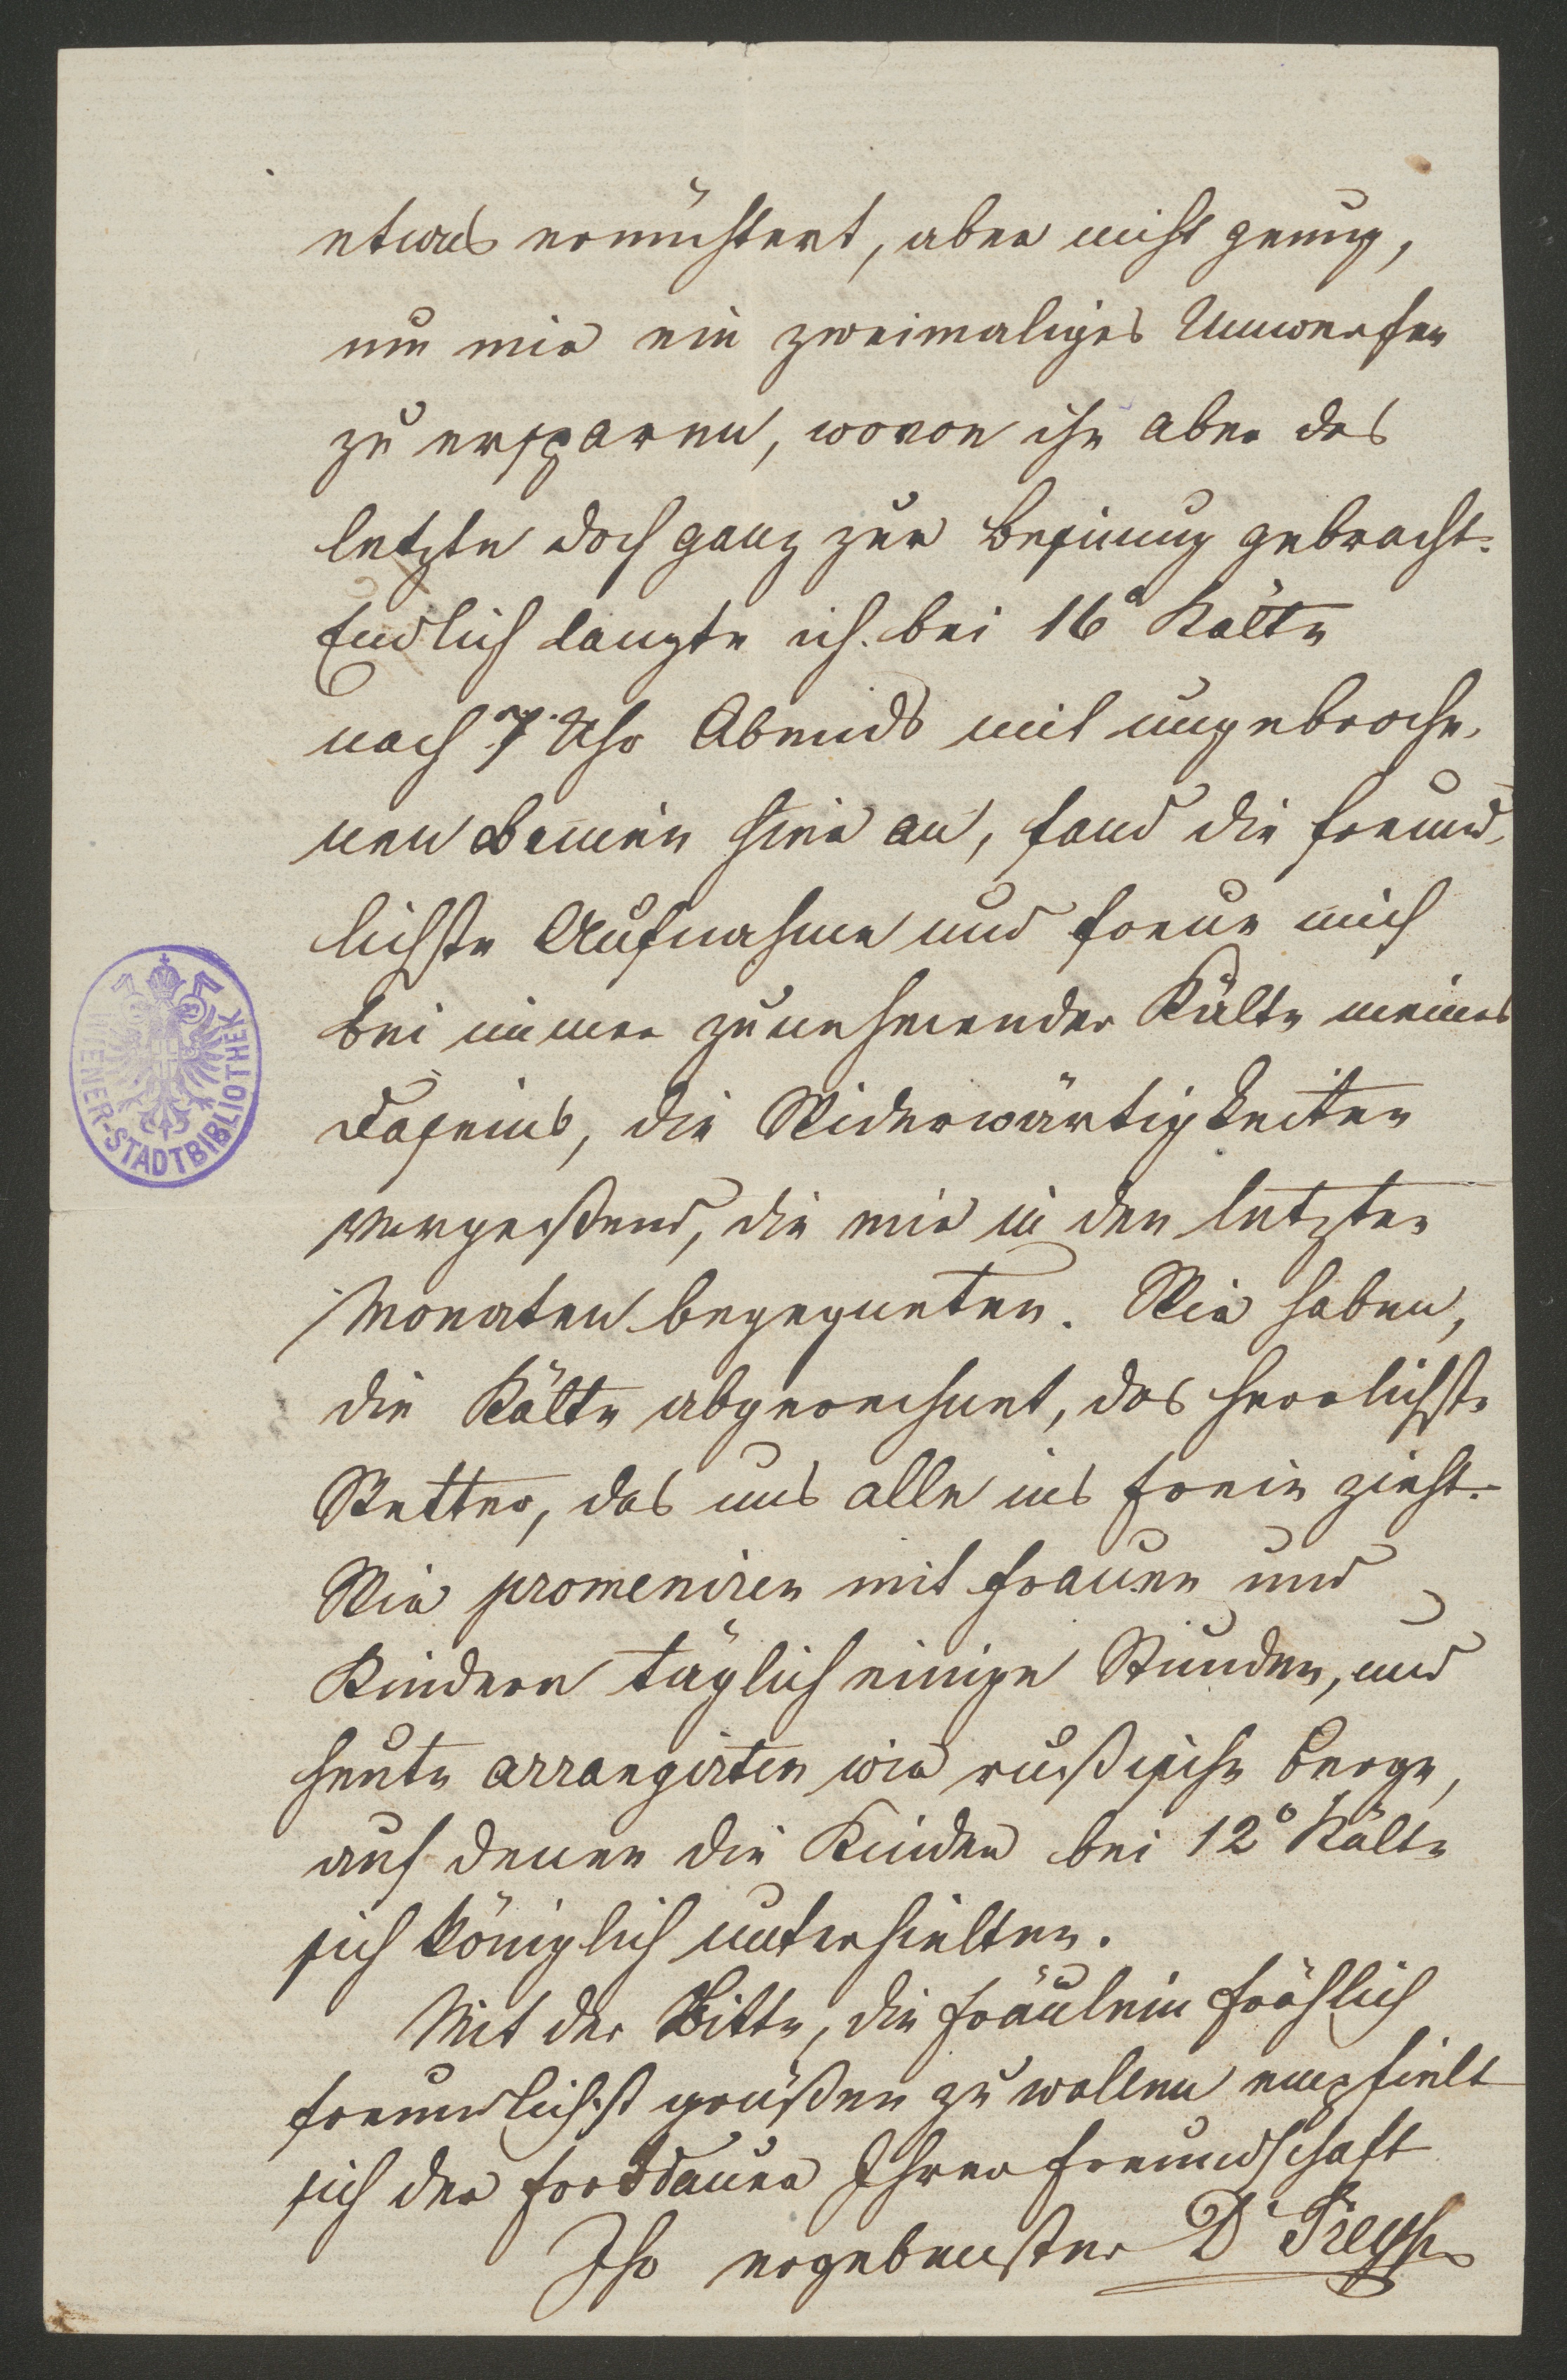 etwas ernüchtert, aber nicht genug,
um mir ein zweimaliges Umwerfen
zu ersparen, wovon ihn aber das
letzte doch ganz zur Besinung gebracht.
Endlich langte ich bei 16° Kälte
nach 7 Uhr Abends mit ungebroche-
nen Beinen hier an, fand die freund-
lichste Aufnahme und freue mich
bei immer zunehmender Kälte meines
Daseins, die Widerwärtigkeiten
vergeßend, die mir in den letzten
Monaten begegneten. Wir haben,
die Kälte abgerechnet, das herrlichste
Wetter, das uns alle ins Freie zieht.
Wir promeniren mit Frauen und
Kindern täglich einige Stunden, und
heute arrangirten wir rußische Berge,
auf denen die Kinder bei 12° Kälte
sich königlich unterhielten.
Mit der Bitte, die Fräulein Fröhlich
freundlichst grüßen zu wollen empfielt
sich der Fortdauer Ihrer Freundschaft
Ihr ergebenster Dr Preyss
WIENER-STADTBIBLIOTHEK